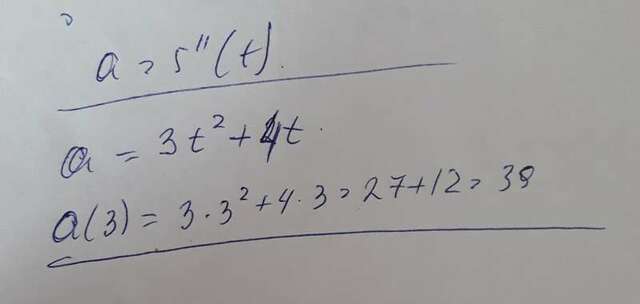 a = s"(t).
a = 3t² + 4t.
a(3) = 3 · 3² + 4 · 3 = 27 + 12 = 39